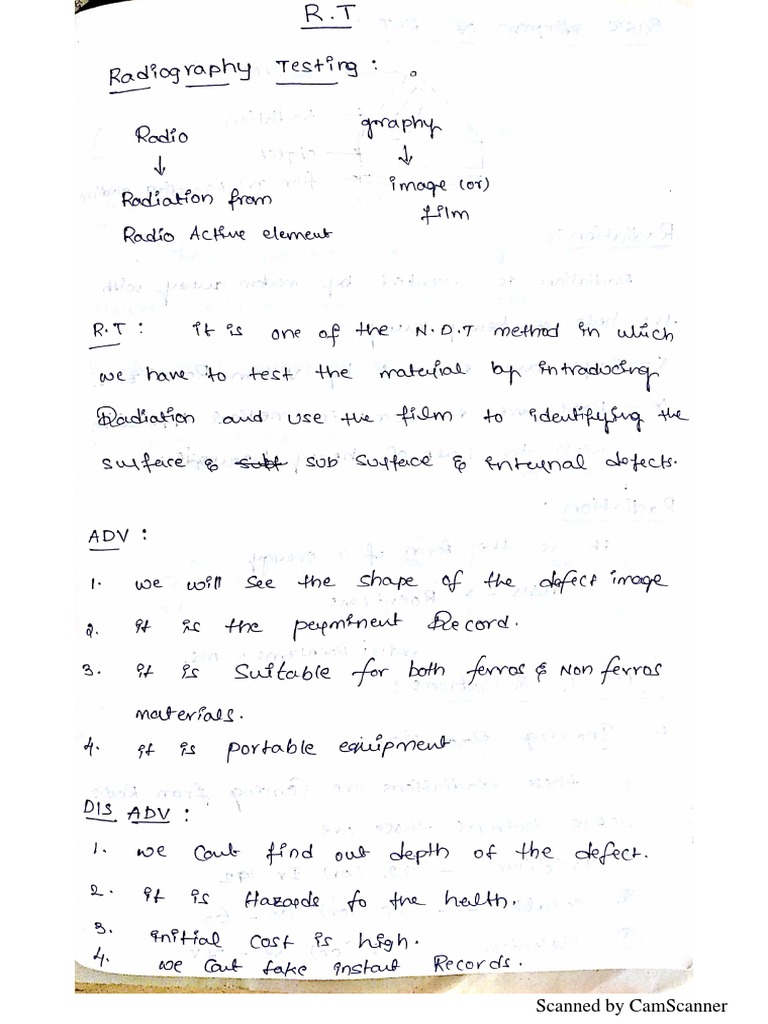 R.T
Radiography Testing :
Radio graphy
↓ ↓
Radiation from image (or)
Radio Active element film
R.T : it is one of the N.D.T method in which
we have to test the material by introducing
Radiation and use the film to identifying the
surface & sub surface & internal defects.
ADV :
1. we will see the shape of the defect image
2. it is the perminent Record.
3. it is suitable for both ferros & Non ferros
materials.
4. it is portable equipment
DIS ADV :
1. we cant find out depth of the defect.
2. it is Hazarde to the health.
3. initial cost is high.
4. we cant take instant Records.
Scanned by CamScanner